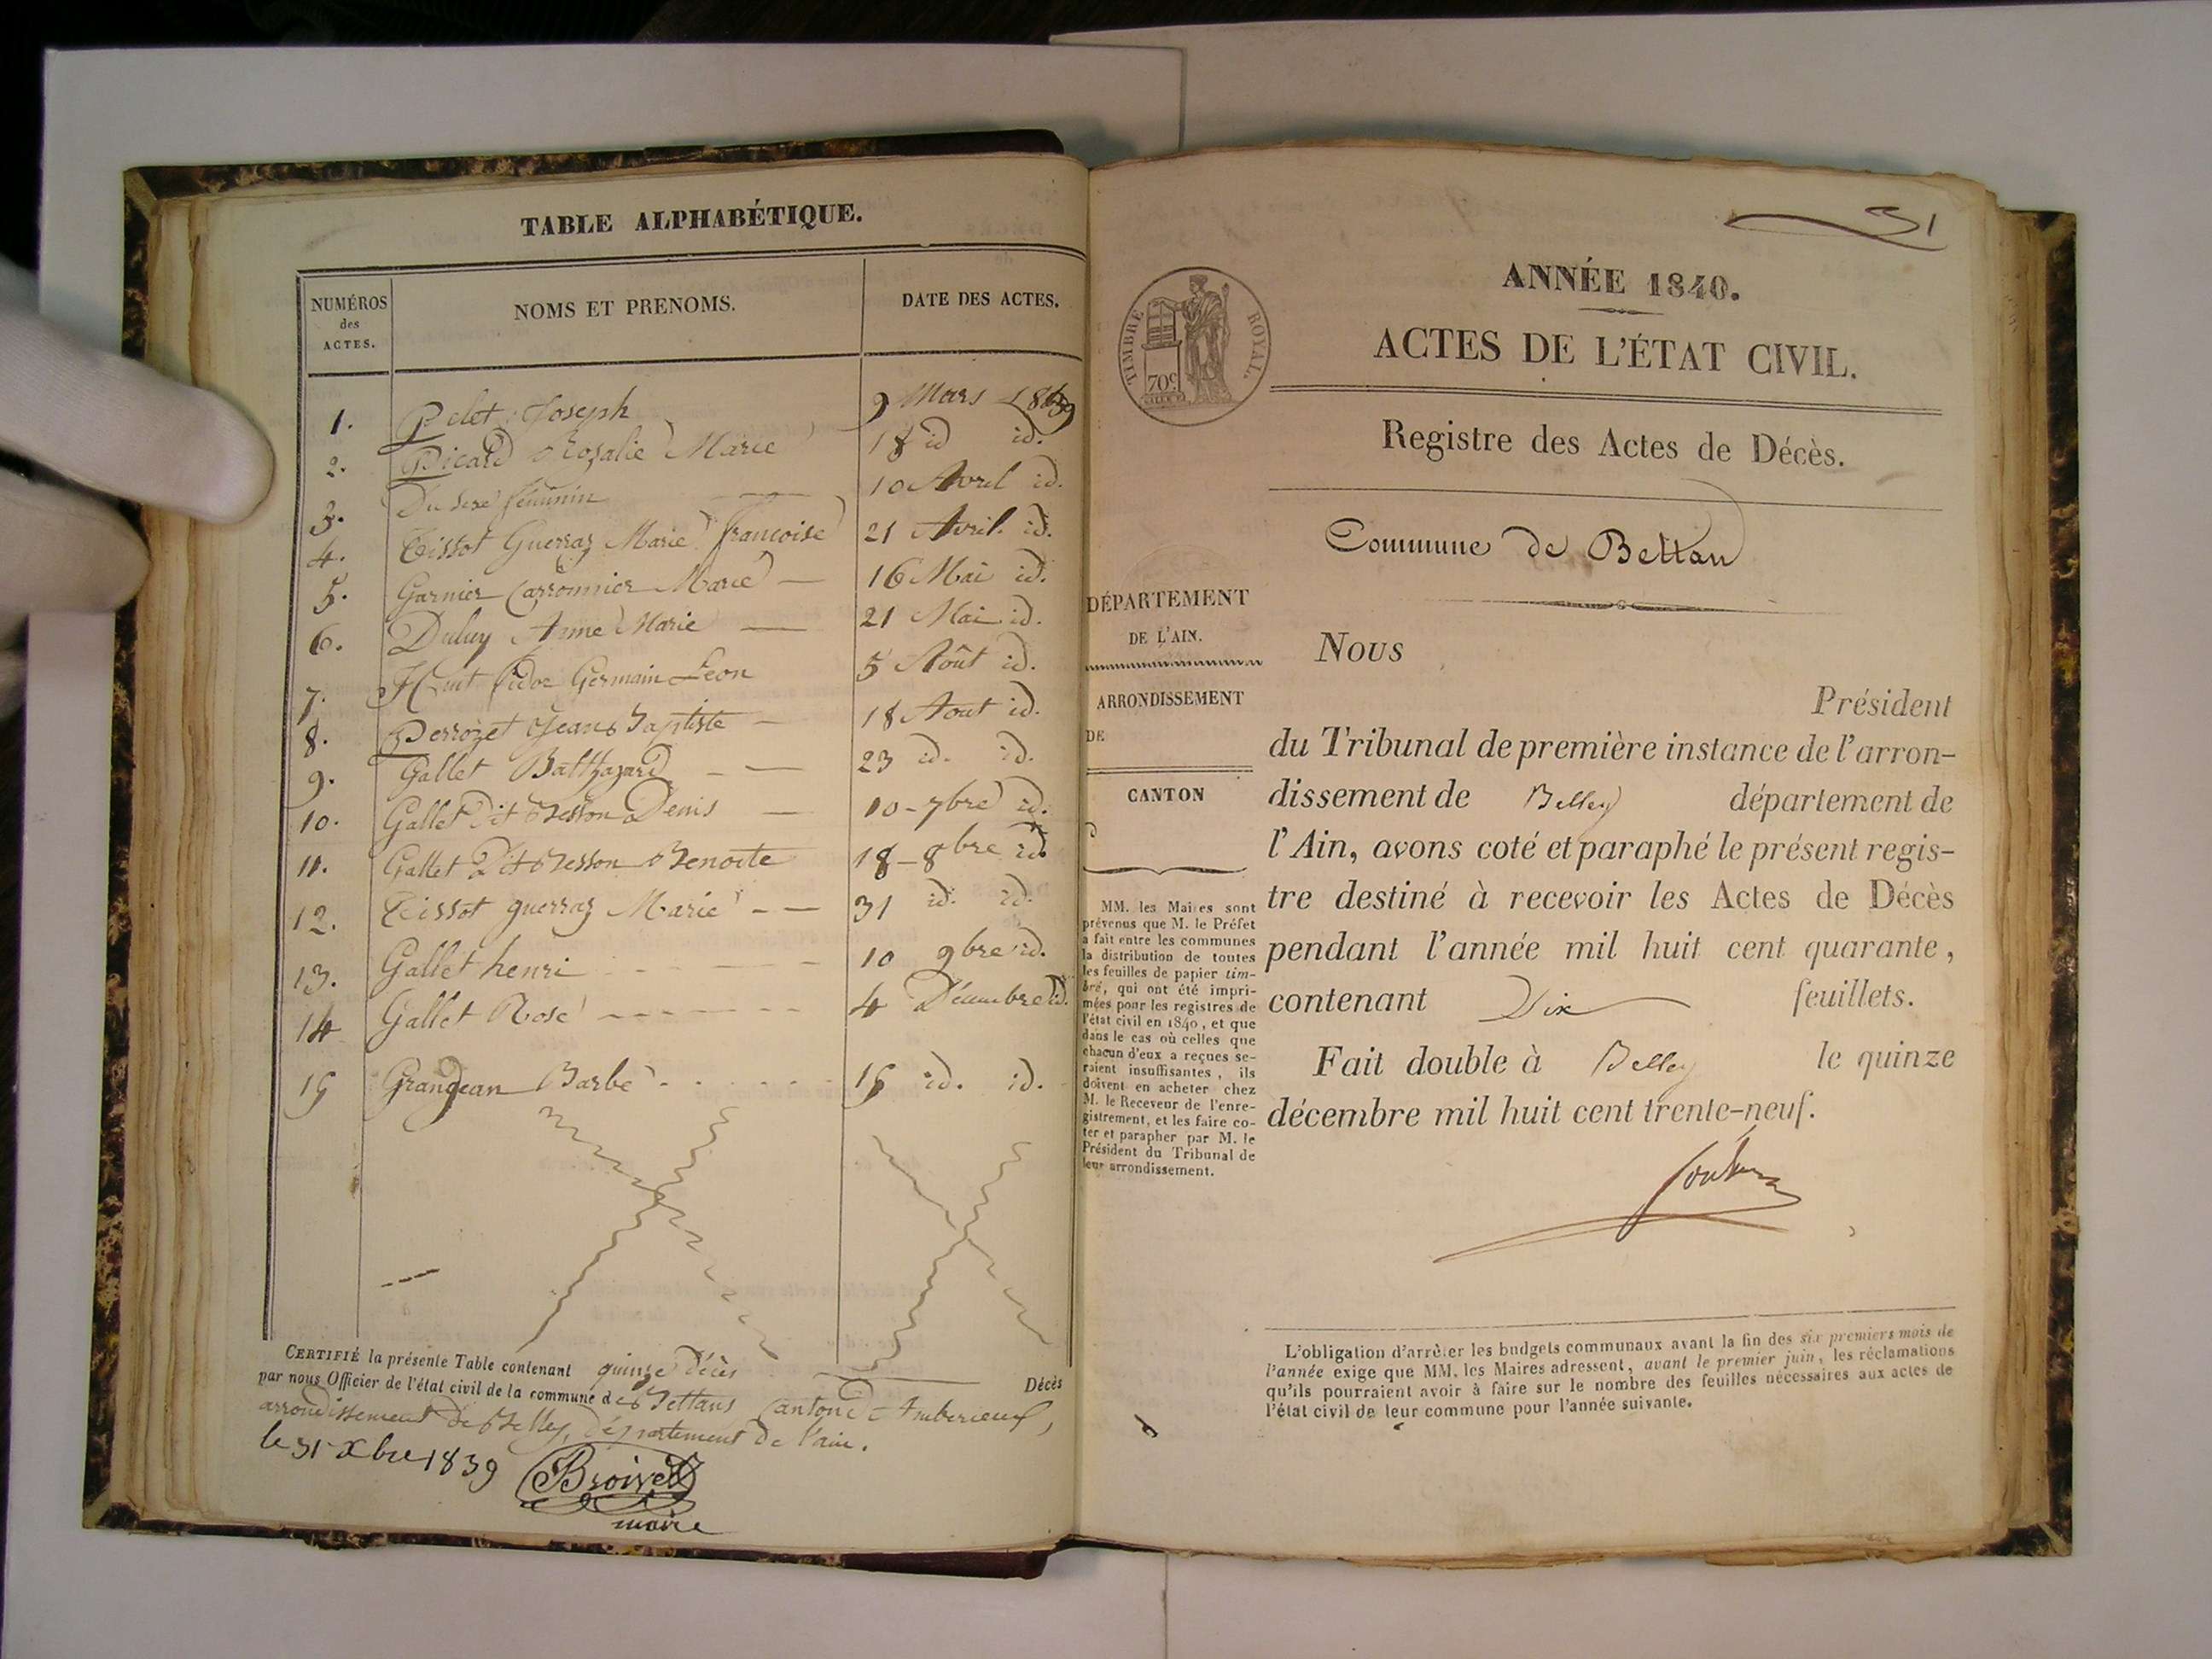 TABLE ALPHABÉTIQUE.
NUMÉROS des ACTES. NOMS ET PRENOMS. DATE DES ACTES.
1. Pelet Joseph 9 Mars 1839
2. Picard Rosalie Marie 18 id id.
3. Du sexe féminin 10 Avril id.
4. Tissot Guerraz Marie françoise 21 Avril id.
5. Garnier Carronnier Marie 16 Mai id.
6. Duluy Anne Marie 21 Mai id.
7. Germain Leon 5 Août id.
8. Perrozet Jean Baptiste 18 Aout id.
9. Gallet Balthazard 23 id. id.
10. Gallet Dit Besson Denis 10 - 7bre id.
11. Gallet Dit Besson Benoite 18 - 8bre id.
12. Tissot guerraz Marie 31 id. id.
13. Gallet henri 10 9bre id.
14 Gallet Rose 4 Décembre id.
15 Grandjean Barbe 15 id. id.
CERTIFIÉ la présente Table contenant quinze décès Décès
par nous Officier de l'état civil de la commune de Bettans Canton d'Amberieux,
arrondissement de Belley, département de l'ain.
le 31 Xbre 1839
maire
31
TIMBRE ROYAL.
70c
ANNÉE 1840.
ACTES DE L'ÉTAT CIVIL.
Registre des Actes de Décès.
Commune de Bettan
DÉPARTEMENT
DE L'AIN.
ARRONDISSEMENT
DE
CANTON
MM. les Maires sont
prévenus que M. le Préfet
a fait entre les communes
la distribution de toutes
les feuilles de papier tim-
bré, qui ont été impri-
mées pour les registres de
l'état civil en 1840, et que
dans le cas où celles que
chacun d'eux a reçues se-
raient insuffisantes, ils
doivent en acheter chez
M. le Receveur de l'enre-
gistrement, et les faire co-
ter et parapher par M. le
Président du Tribunal de
leur arrondissement.
Nous
Président
du Tribunal de première instance de l'arron-
dissement de Belley département de
l'Ain, avons coté et paraphé le présent regis-
tre destiné à recevoir les Actes de Décès
pendant l'année mil huit cent quarante,
contenant Dix feuillets.
Fait double à Belley le quinze
décembre mil huit cent trente-neuf.
L'obligation d'arrêter les budgets communaux avant la fin des six premiers mois de
l'année exige que MM. les Maires adressent, avant le premier juin, les réclamations
qu'ils pourraient avoir à faire sur le nombre des feuilles nécessaires aux actes de
l'état civil de leur commune pour l'année suivante.